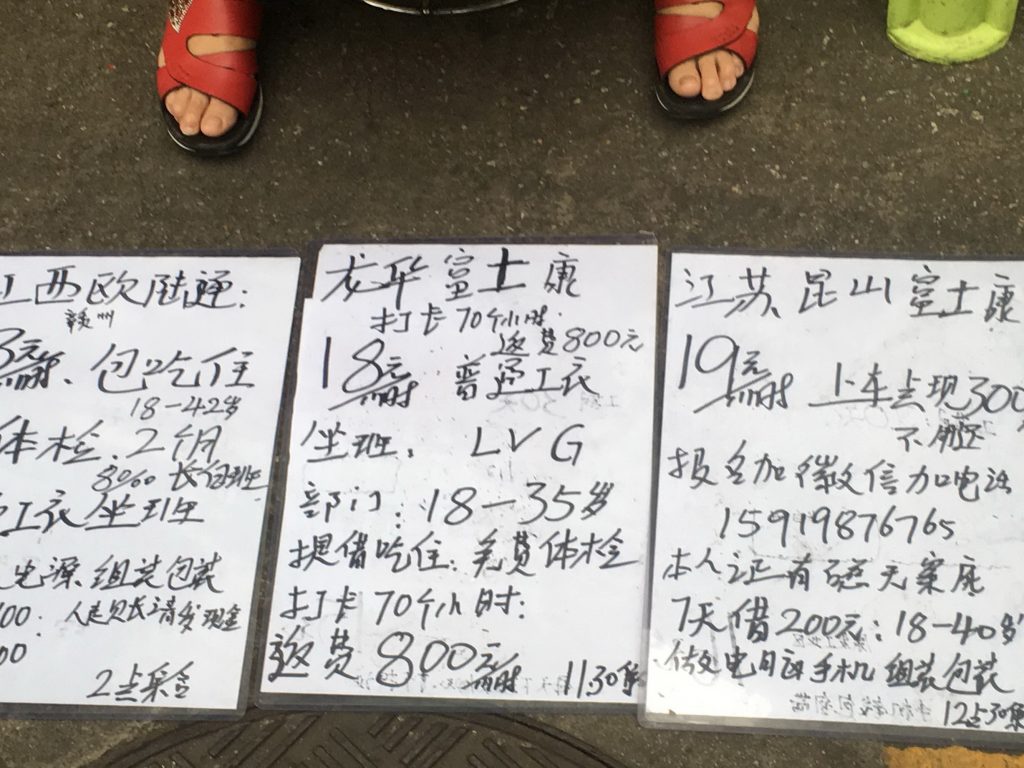 江西欧陆通:
赣州
3元/小时. 包吃住
18-42岁
体检. 2个月
8000 长白班
工衣 坐班
组装包装
00. 现金
00
2点集合
龙华富士康
打卡70个小时.
返费800元
18元/小时 普通工衣
坐班. LVG
部门: 18-35岁
提借吃住: 免费体检
打卡70个小时:
返费800元/小时 1130集
江苏昆山富士康
19元/小时 上车点现300
不用还
报名加微信加电话
15919876765
本人证有磁无案底
7天借200元: 18-40岁
做电脑手机组装包装
12点30集